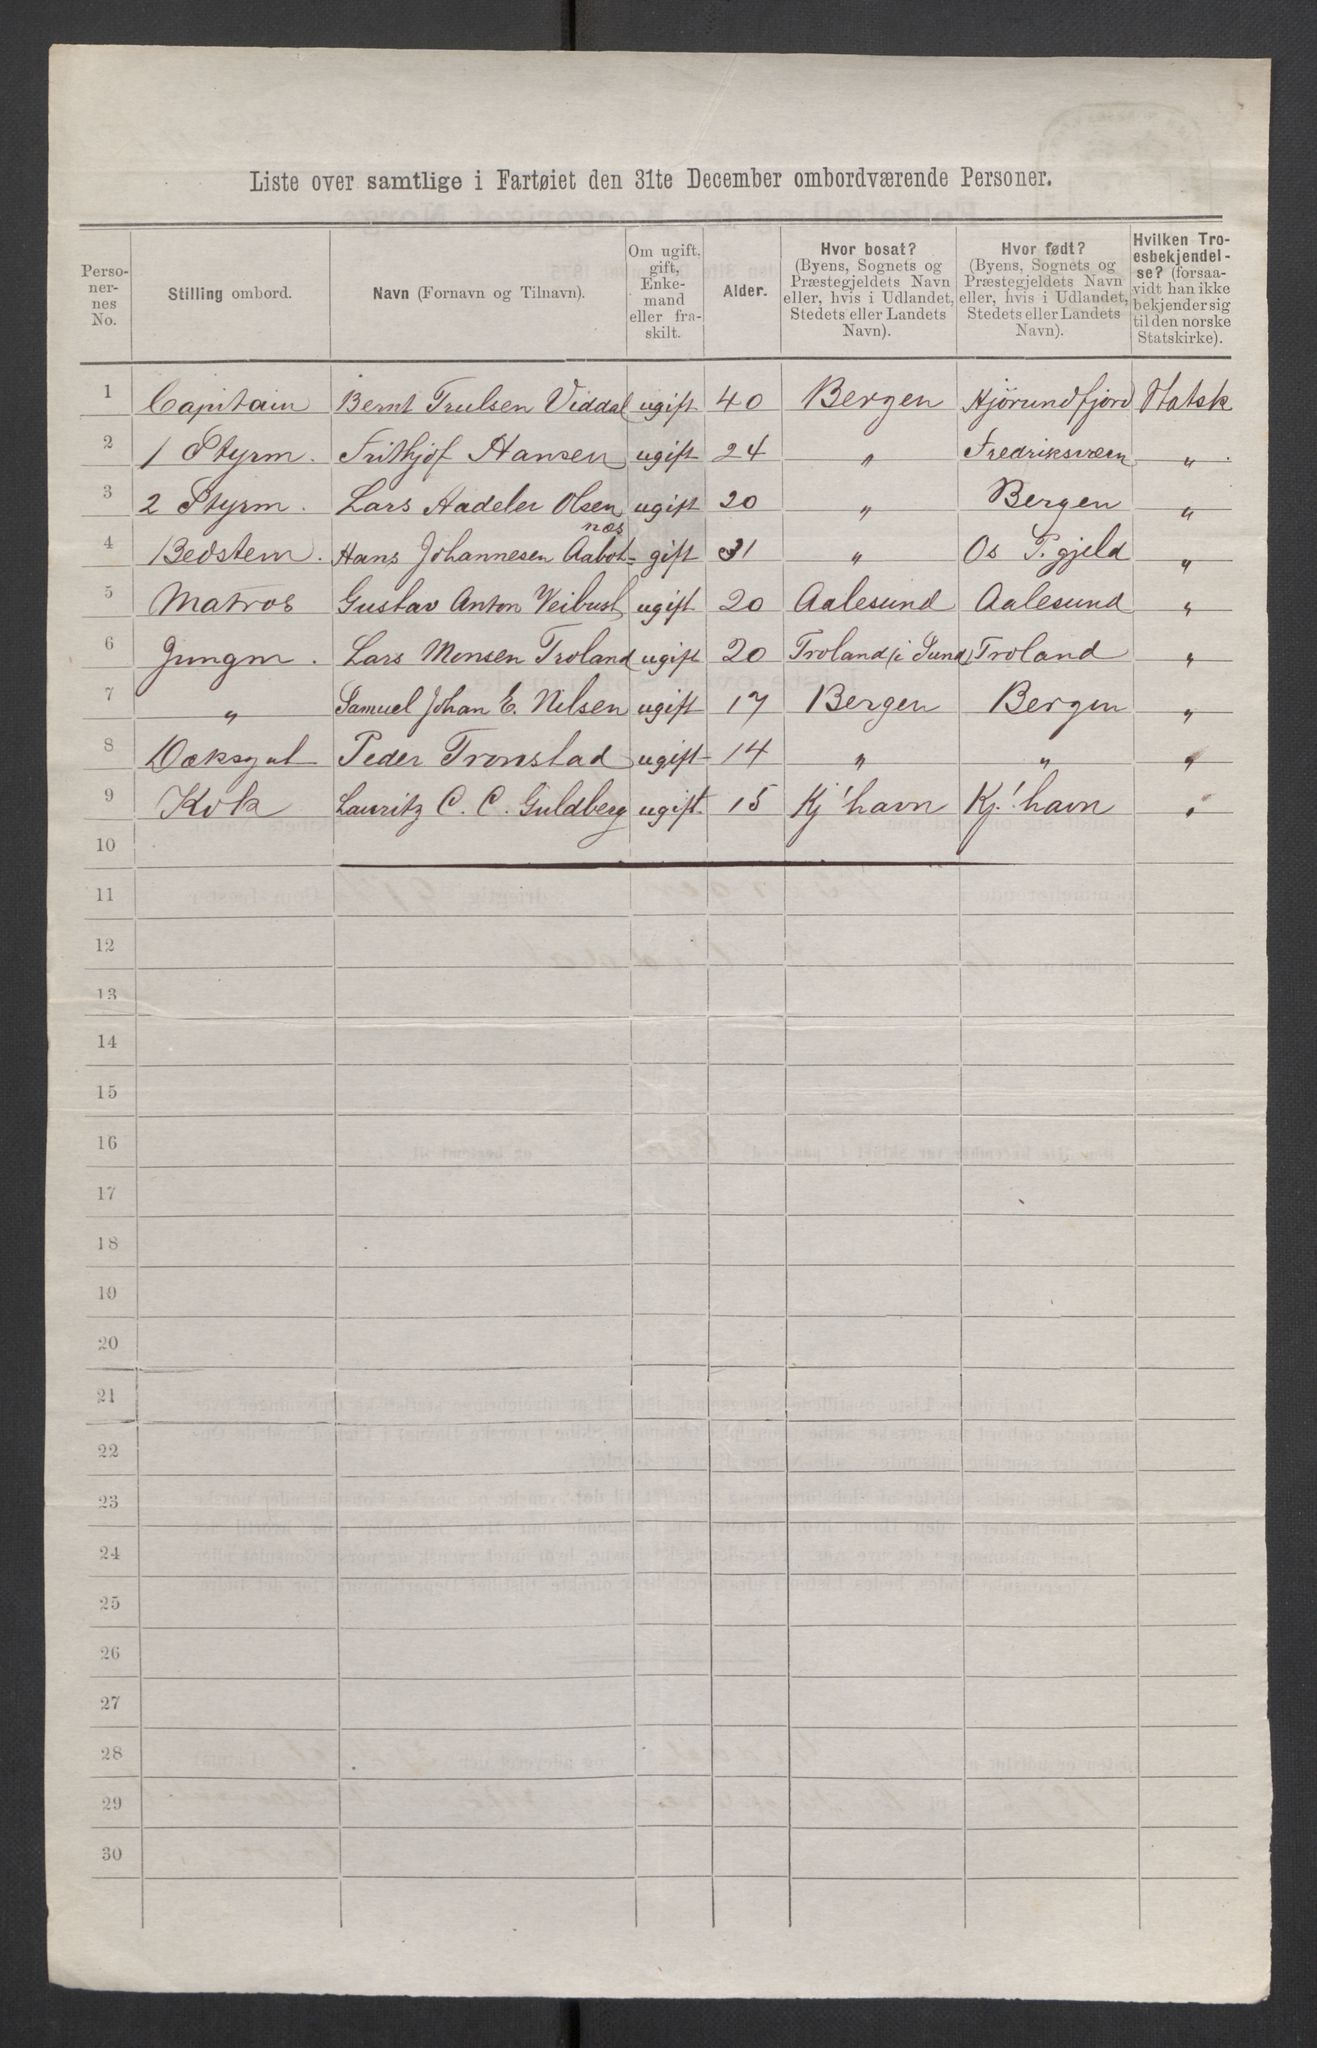 Liste over samtlige i Fartøiet den 31te December ombordværende Personer.
Perso-
ner-
nes
No.
Stilling ombord.
Navn (Fornavn og Tilnavn).
Om ugift,
gift,
Enke-
mand
eller fra-
skilt.
Alder.
Hvor bosat?
(Byens, Sognets og
Præstegjeldets Navn
eller, hvis i Udlandet,
Stedets eller Landets
Navn).
Hvor født?
(Byens, Sognets og
Præstegjeldets Navn
eller, hvis i Udlandet,
Stedets eller Landets
Navn).
Hvilken Tro-
esbekjendel-
se? (forsaa-
vidt han ikke
bekjender sig
til den norske
Statskirke).
1 Capitain Bernt Trulsen Viddal ugift 40 Bergen Hjörundfjord Statsk
2 1 Styrm. Frithjof Hansen ugift 24 " Fredriksværn "
3 2 Styrm. Lars Hadeler Olsen ugift 20 " Bergen "
næs
4 Bedstem. Hans Johannesen Aabot- gift 31 " Os P.gjeld "
5 Matros Gustav Anton Veibust ugift 20 Aalesund Aalesund "
6 Jungm. Lars Monsen Troland ugift 20 Troland (i Sund) Troland "
7 " Samuel Johan E. Nilsen ugift 17 Bergen Bergen "
8 Dæksgut Peder Tronstad ugift 14 " " "
9 Kok Lauritz C. C. Guldberg ugift. 15 Kj!havn Kj.!havn "
10
11
12
13
14
15
16
17
18
19
20
21
22
23
24
25
26
27
28
29
30